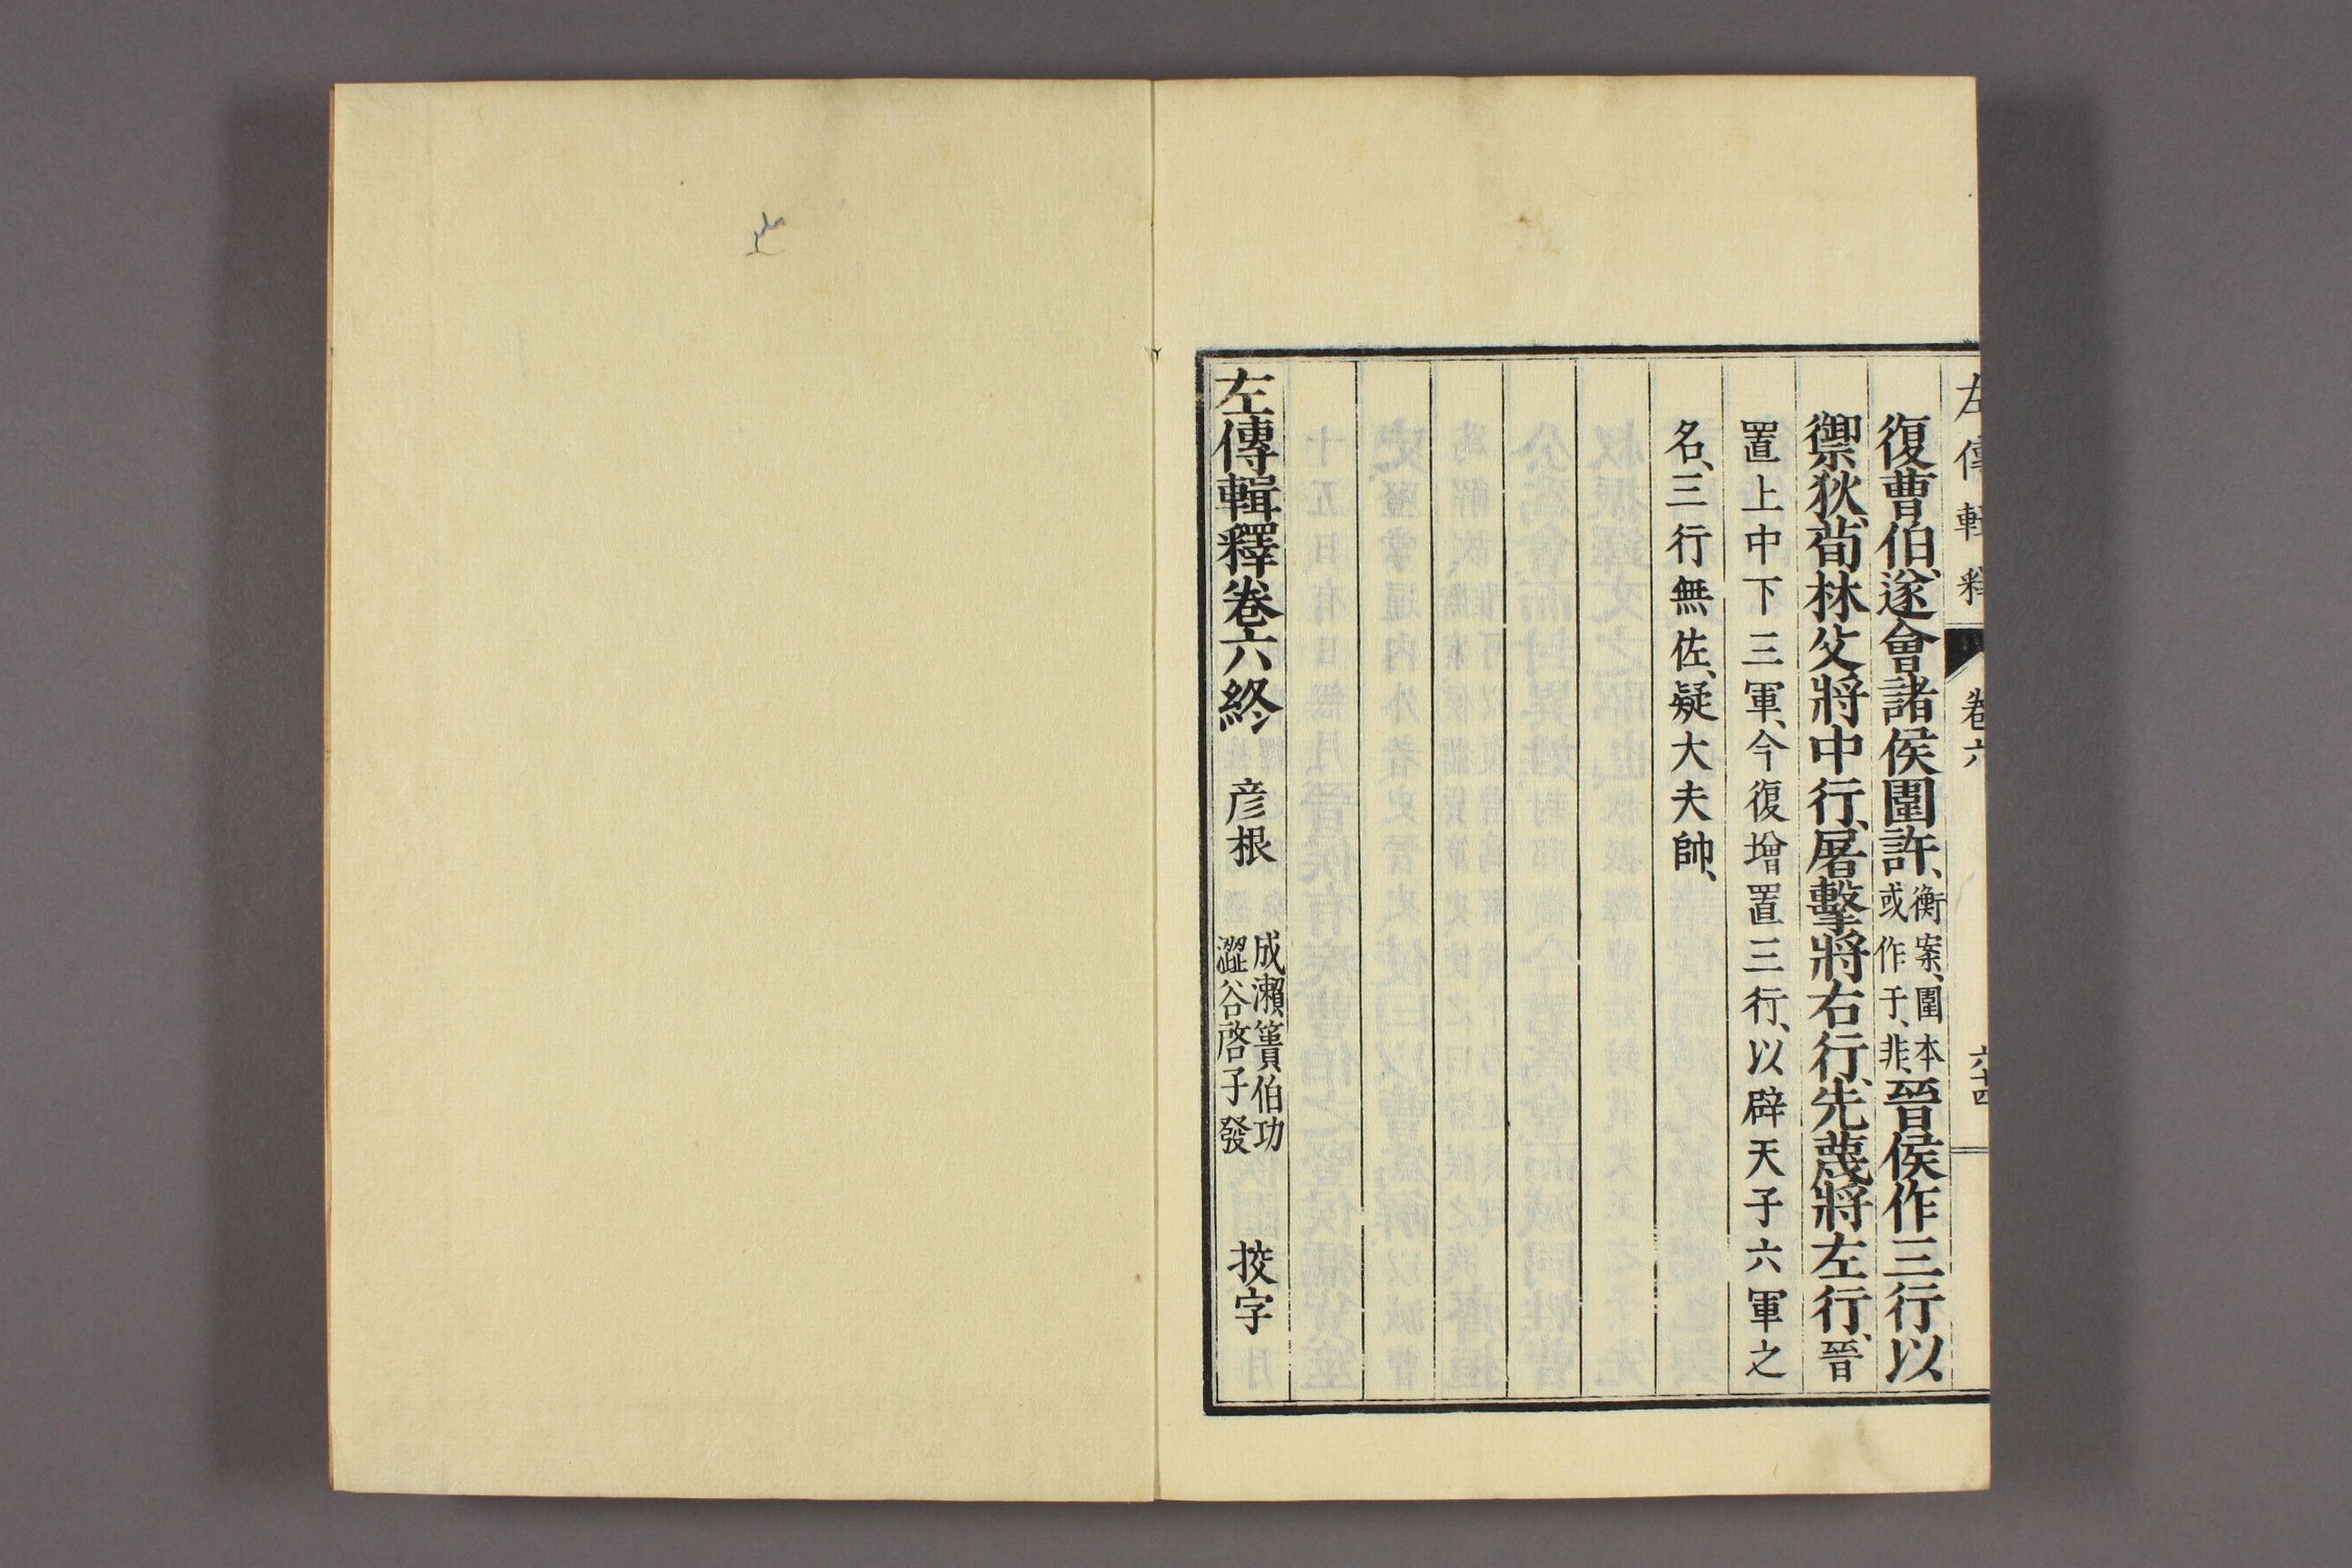 左傳輯釋 卷六 六十四
復曹伯、遂會諸侯圍許、衡案、圍本或作于、非、晉侯作三行以
禦狄、荀林父將中行、屠擊將右行、先蔑將左行、晉
置上中下三軍、今復增置三行、以辟天子六軍之
名、三行無佐、疑大夫帥、
左傳輯釋卷六終 彦根 成瀨簣伯功 澀谷啓子發 挍字